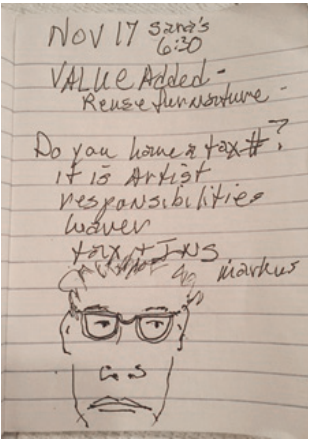 Nov 17 Sara's
6:30
VALUE Added -
Reuse furnature -
Do you have a tax #?
it is Artist
responsibilities
waver
tax + INS
markus